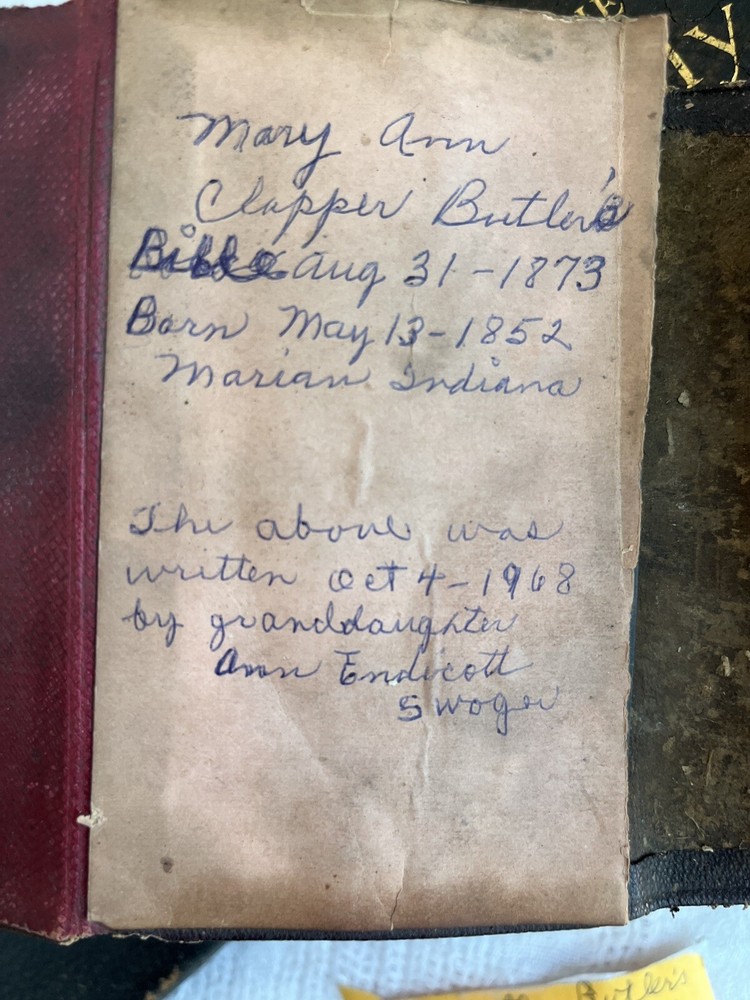 Mary Ann
Clapper Butler's
Bible Aug 31-1873
Born May 13-1852
Marian Indiana
The above was
written Oct 4-1968
by granddaughter
Ann Endicott
Swoger
Butler's